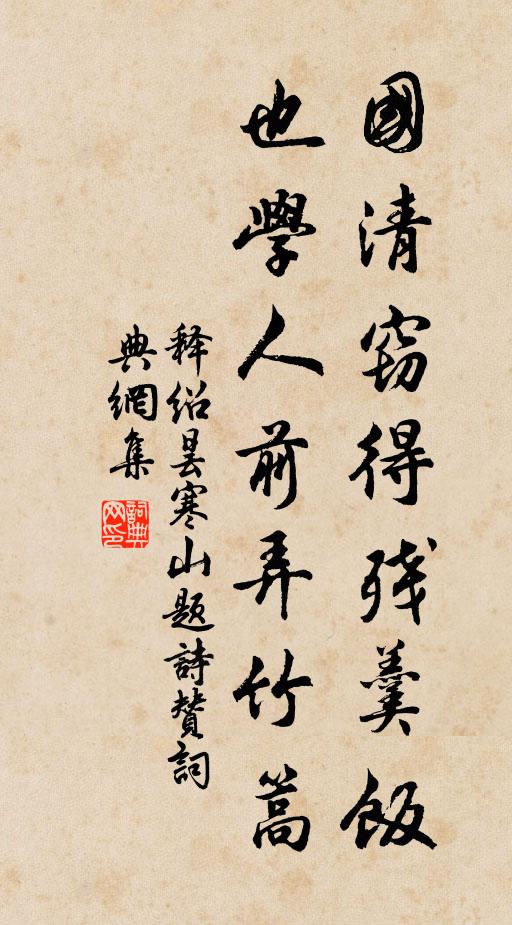 國清窃得残羹飯
也學人前弄竹篙
释绍昙寒山题詩賛詞
典網集
詞典
网印